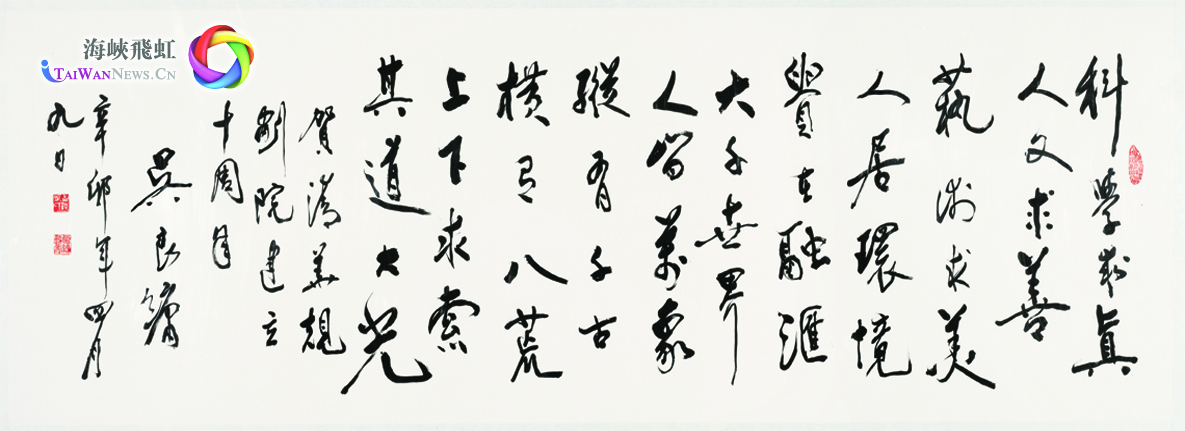 海峽飛虹
iTaiWanNews.Cn
科學求真
人文求善
藝術求美
人居環境
貴在融滙
大千世界
人萬象
縱有千古
橫有八荒
上下求索
其道大光
賀清華規
劃院建立
十周年
吳良鏞
辛卯年四月
九日